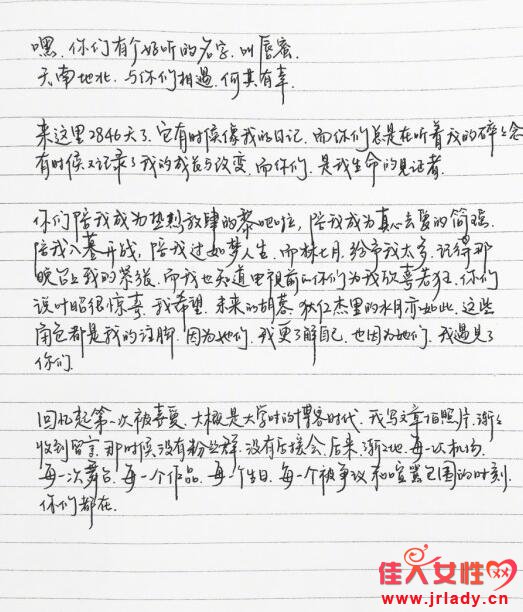 嘿,你们有个好听的名字,叫唇蜜.
天南地北,与你们相遇,何其有幸
来这里2846天了,它有时候像我的日记,而你们总是在听着我的碎碎念
有时候又记录了我的成长与改变,而你们,是我生命的见证者.
你们陪我成为热烈放肆的黎吧啦,陪我成为真心去爱的简瑶.
陪我入暮开战,陪我过如梦人生.而林七月,给予我太多.记得那
晚台上我的紧张,而我也知道电视前的你们为我欣喜若狂.你们
说叶昭很惊喜,我希望,未来的胡蓉,狄仁杰里的水月亦如此,这些
角色都是我的注脚.因为她们,我更了解自己,也因为她们,我遇见了
你们.
回忆起第一次被喜爱,大概是大学时的博客时代,我写文章拍照片,渐渐
收到留言,那时候没有粉丝群,没有后援会,后来,渐渐地,每一次机场,
每一次舞台,每一个作品,每一个生日,每一个被争议和喧嚣包围的时刻.
你们都在.
佳人女性网
www.jrlady.cn